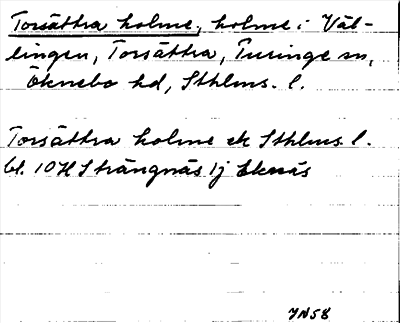 Torsättra holme, holme i Väl-
lingen, Torsättra, Turinge sn,
Öknebo hd, Sthlms. l.
Torsättra holme ek Sthlms l.
bl. 10H Strängnäs 1j Ekenäs
JN58